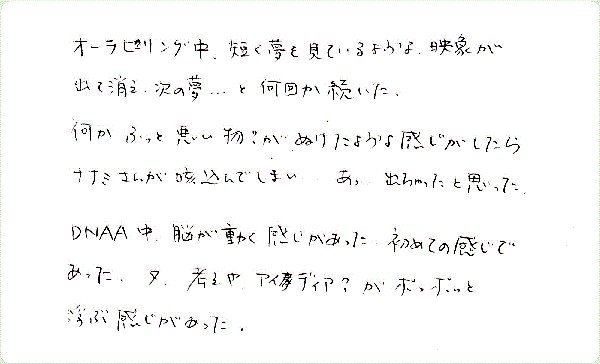 オーラヒーリング中、短く夢を見ているような、映象が
出て消え、次の夢…と何回か続いた。
何かふっと悪い物?がぬけたような感じがしたら
ナナミさんが咳込んでしまい…あっ、出ちゃったと思った。
DNAA中、脳が動く感じがあった、初めての感じで
あった。又、考えや、アイディア?がポッポッと
浮ぶ感じがあった。